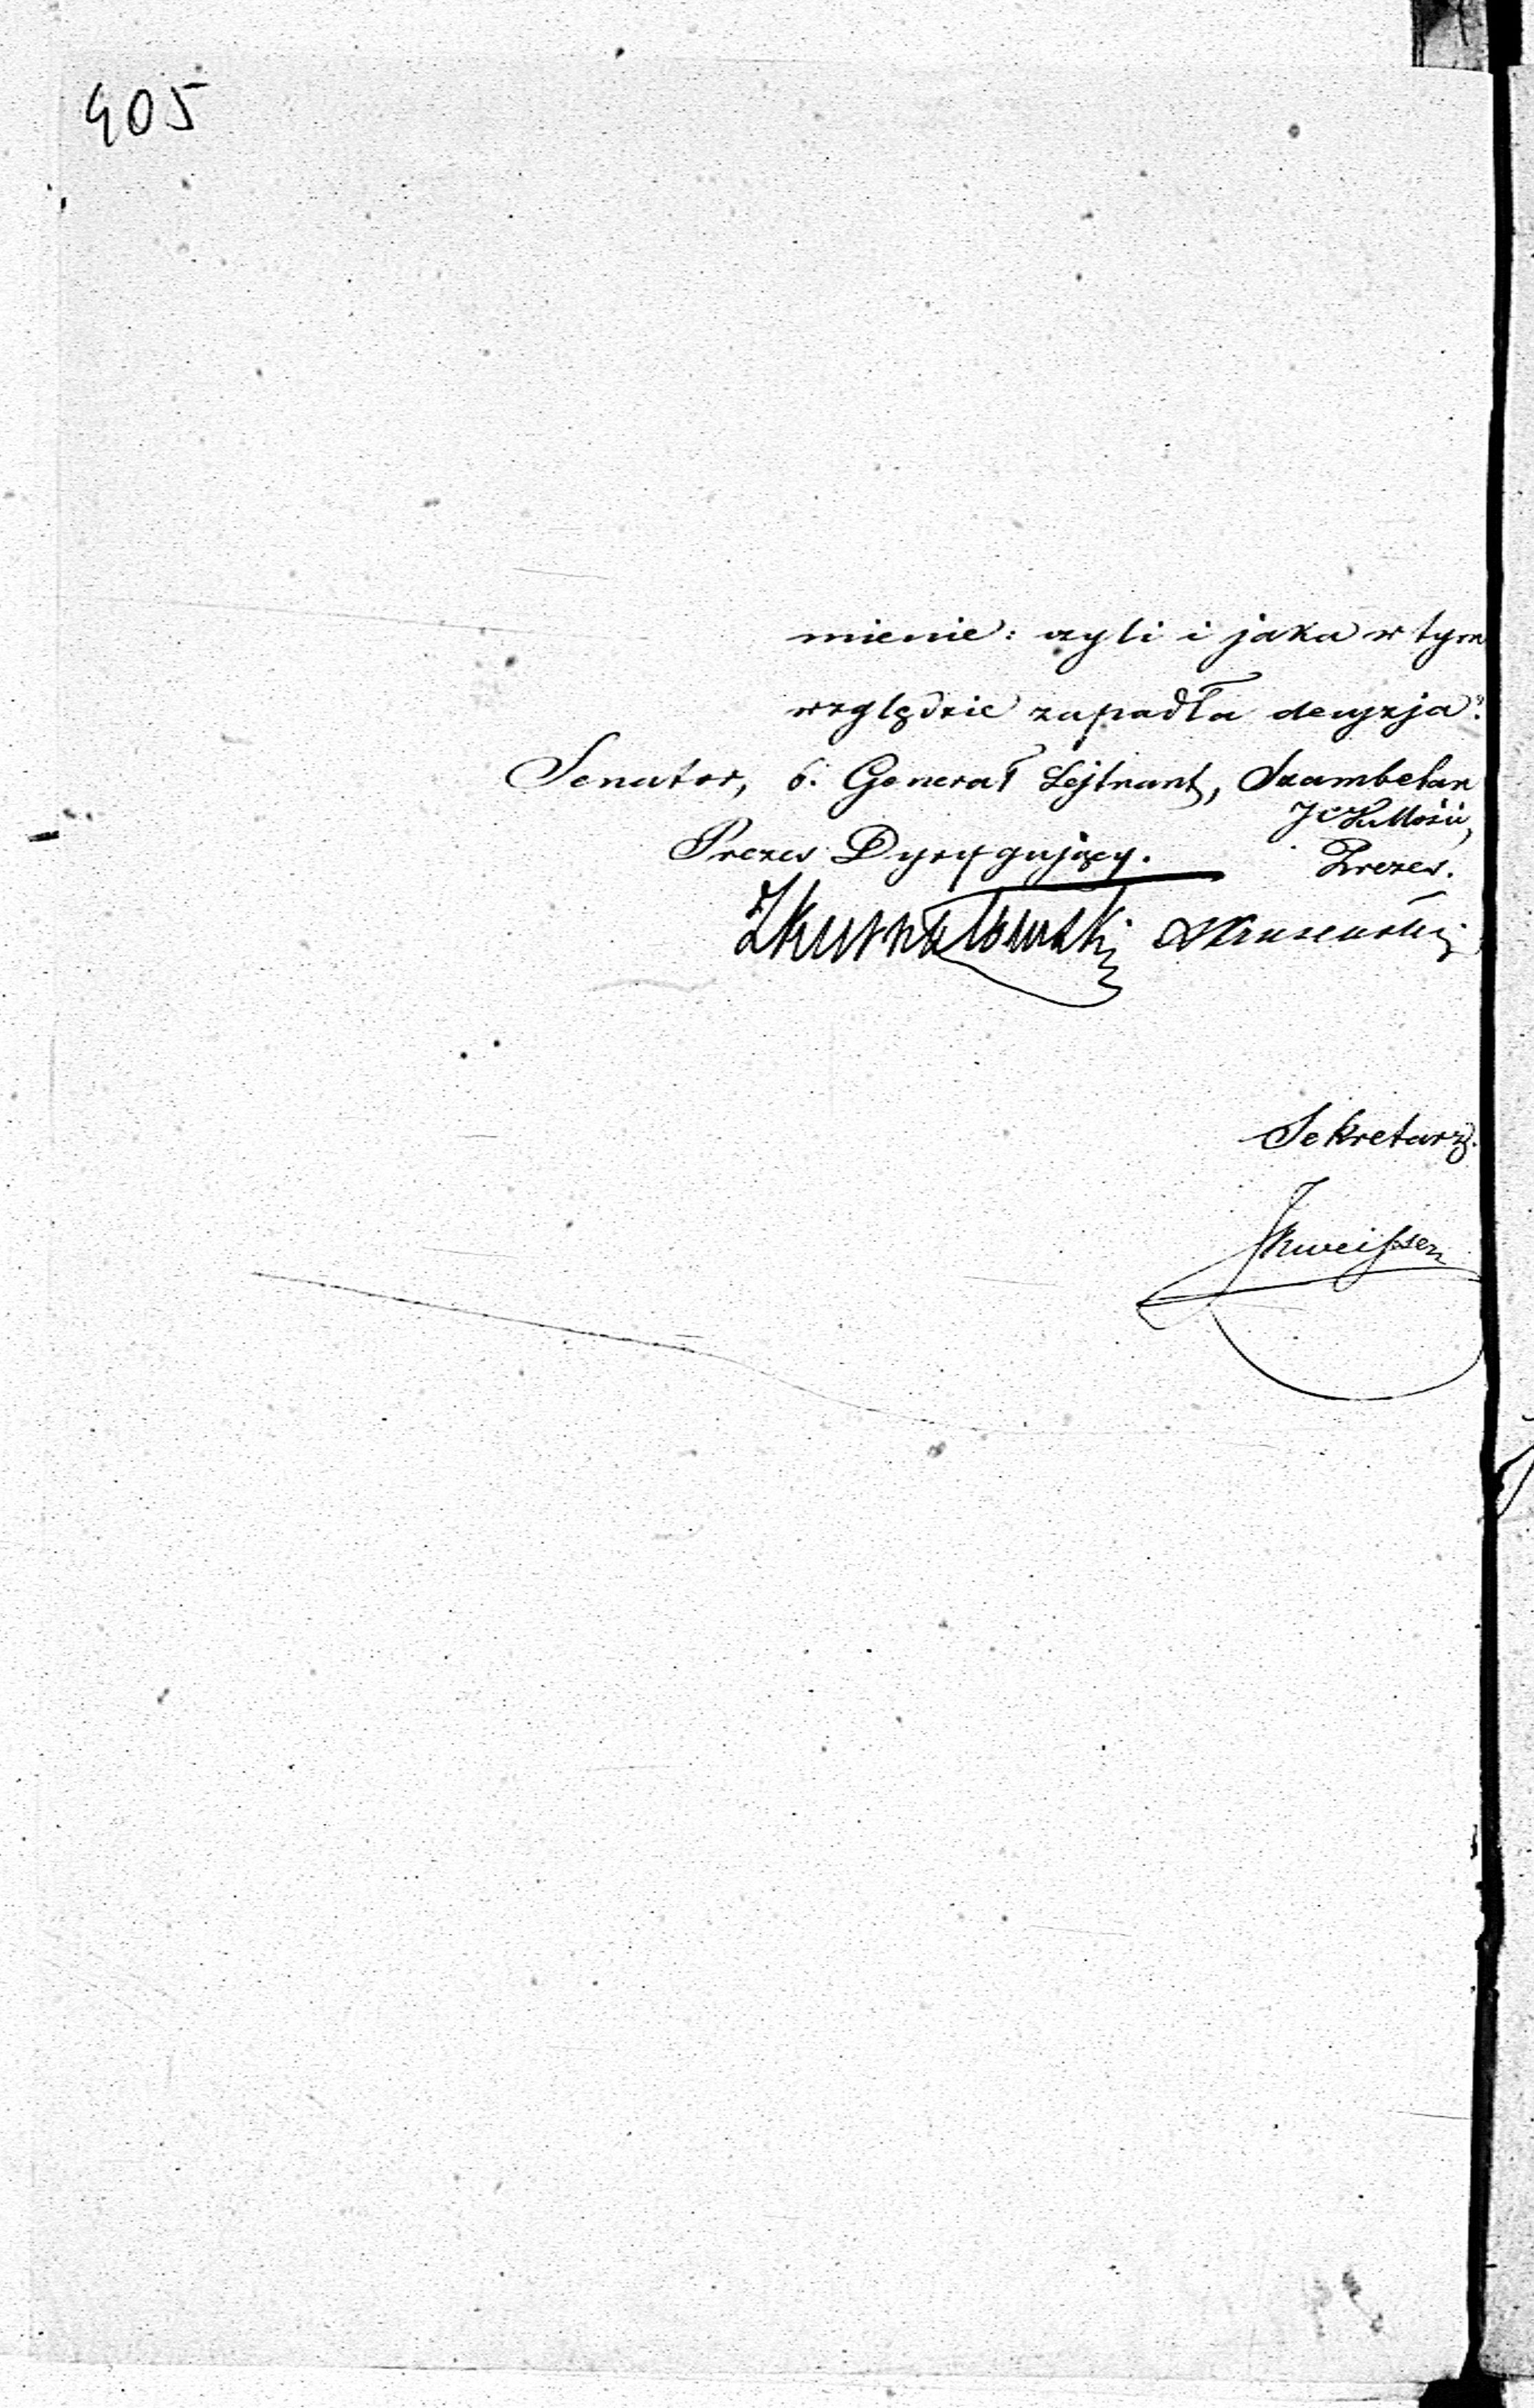 405
mienie: czyli i jaka w tym
względzie zapadła decyzja?
Senator, b. Generał Lejtnant, Szambelan
J C K Mości,
Prezes Dyrygujący. Prezes.
ZKurnatowski
Sekretarz.